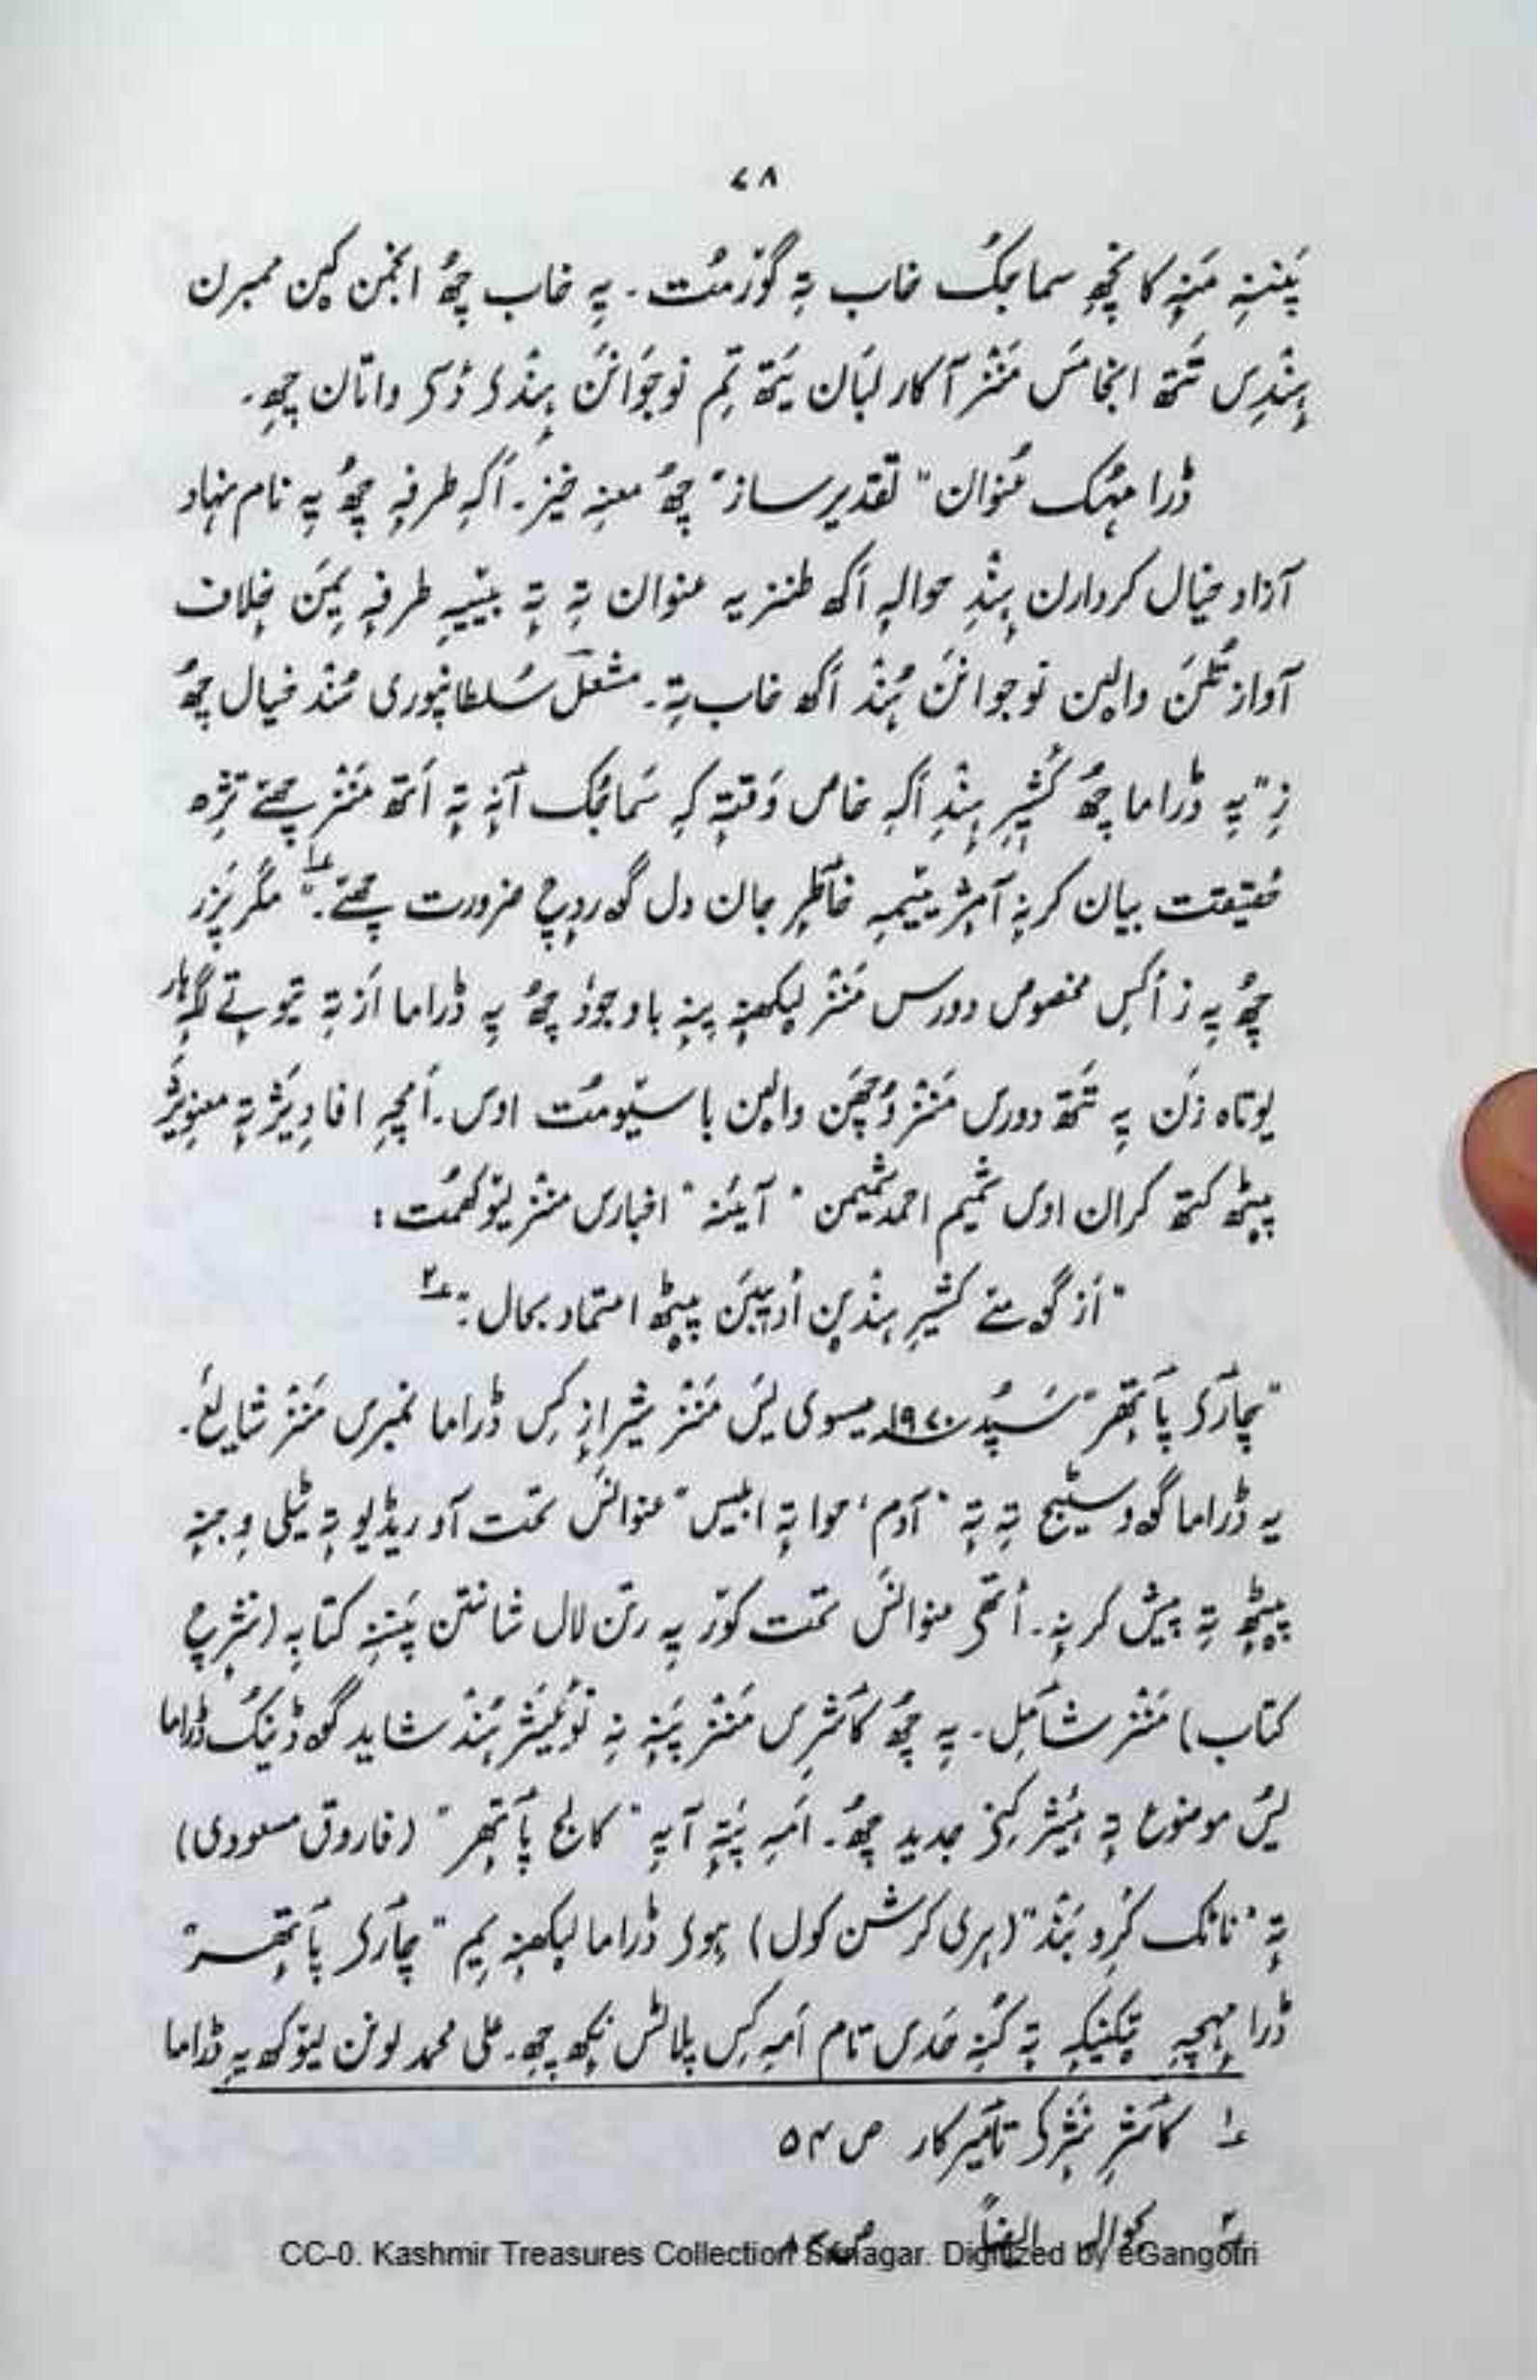 ۷۸
پَننِہِ مَنہِ کانچھِ سماجُک خاب تہِ گوٚژمُت۔ یہِ خاب چھُ انجمن کین ممبرن
ہِنٛدِس تَتھ انجامَس مَنٛز آکار لبَان یَتھ تِم نوجوانَن ہِنٛدؠ ذکر واتان چھِ۔
ڈرامہُک عُنوان "تقدیر ساز" چھُ معنہِ خیز۔ اَکہِ طرفہٕ چھُ یہِ نام نہاد
آزاد خیال کردارن ہِنٛدِ حوالہٕ اَکھ طنزیہ عنوان تہِ تہٕ بیٚیہِ طرفہٕ یِمَن خِلاف
آواز تُلَن والین نوجوانَن ہُنٛد اَکھ خاب تہِ۔ مشعل سُلطانپوری سُنٛد خیال چھُ
زِ "یہِ ڈراما چھُ کٔشیٖرِ ہِنٛدِ اَکہِ خاص وَقتہٕ کہِ سَماجُک آنہٕ تہٕ اَتھ مَنٛز چھےٚ تژٕہ
حقیقت بیان کرنہٕ آمٕژ یٚمیہِ خٲطرٕ جان دل گردٕچ ضرورت چھےٚ۔"؂۱ مگر پَزَر
چھُ یہِ زِ اَکِس مخصوص دورس مَنٛز لیکھنہٕ ینہٕ باوجوٗد چھُ یہِ ڈراما اَز تہِ تیوٗتے لگہٕ ہار
یوٗتاہ زَن یہِ تَتھ دورس مَنٛز وُچھَن والین باسیوٚمُت اوس۔ اَمچہِ افادِیَژ تہٕ معنوِیَژ
پیٚٹھ کتھ کران اوس شمیم احمد شمیمن "آیئنہ" اخبارس منٛز لیوٗکھمُت:
"اَز گوٚو مےٚ کٔشیٖرِ ہِنٛدیَن ادیبَن پیٚٹھ اعتماد بحال"۔؂۲
"ژٲرؠ پٲتھٕر" سَپُد ۱۹۷۰؁ عیسوی یَس مَنٛز شیرازٕ کِس ڈراما نمبرس مَنٛز شایع۔
یہ ڈراما گوٚو سٹیج تہِ تہٕ "آدم، حوا تہٕ ابلیس" عنوانَس تحت آو ریڈیو تہٕ ٹیلی وِجنہٕ
پیٚٹھٕ تہِ پیش کرنہٕ۔ اَتھؠ عنوانَس تحت کوٚر یہِ رتن لال شانتن پَننِہِ کتابہِ (نثرٕچ
کتاب) مَنٛز شٲمِل۔ یہِ چھُ کٲشرِس مَنٛز پَننہِ نوعیٚژ ہُنٛد شاید گوٚڈنیُک ڈراما
یُس موضوع تہٕ ہیٚژ کِنؠ جدید چھُ۔ اَمہِ پَتہٕ آیہِ "کالج پٲتھٕر" (فاروق مسعودی)
تہٕ "ناٹک کٔرِو بَنٛد" (ہری کرشن کول) ہِوؠ ڈراما لیکھنہٕ یِم "ژٲرؠ پٲتھٕر"
ڈرامہٕچہِ تیکنیکہِ تہٕ کُنہِ حَدس تام اَمہِ کِس پلاٹَس نِکھ چھِ۔ علی محمد لونن لیوٗکھ یہِ ڈراما
؂۱ کٲشرِ نثرٕکؠ تٲمیٖرکار ص ۵۴
؂۲ بحوالہ ایضاً
CC-0. Kashmir Treasures Collection Srinagar. Digitized by eGangotri